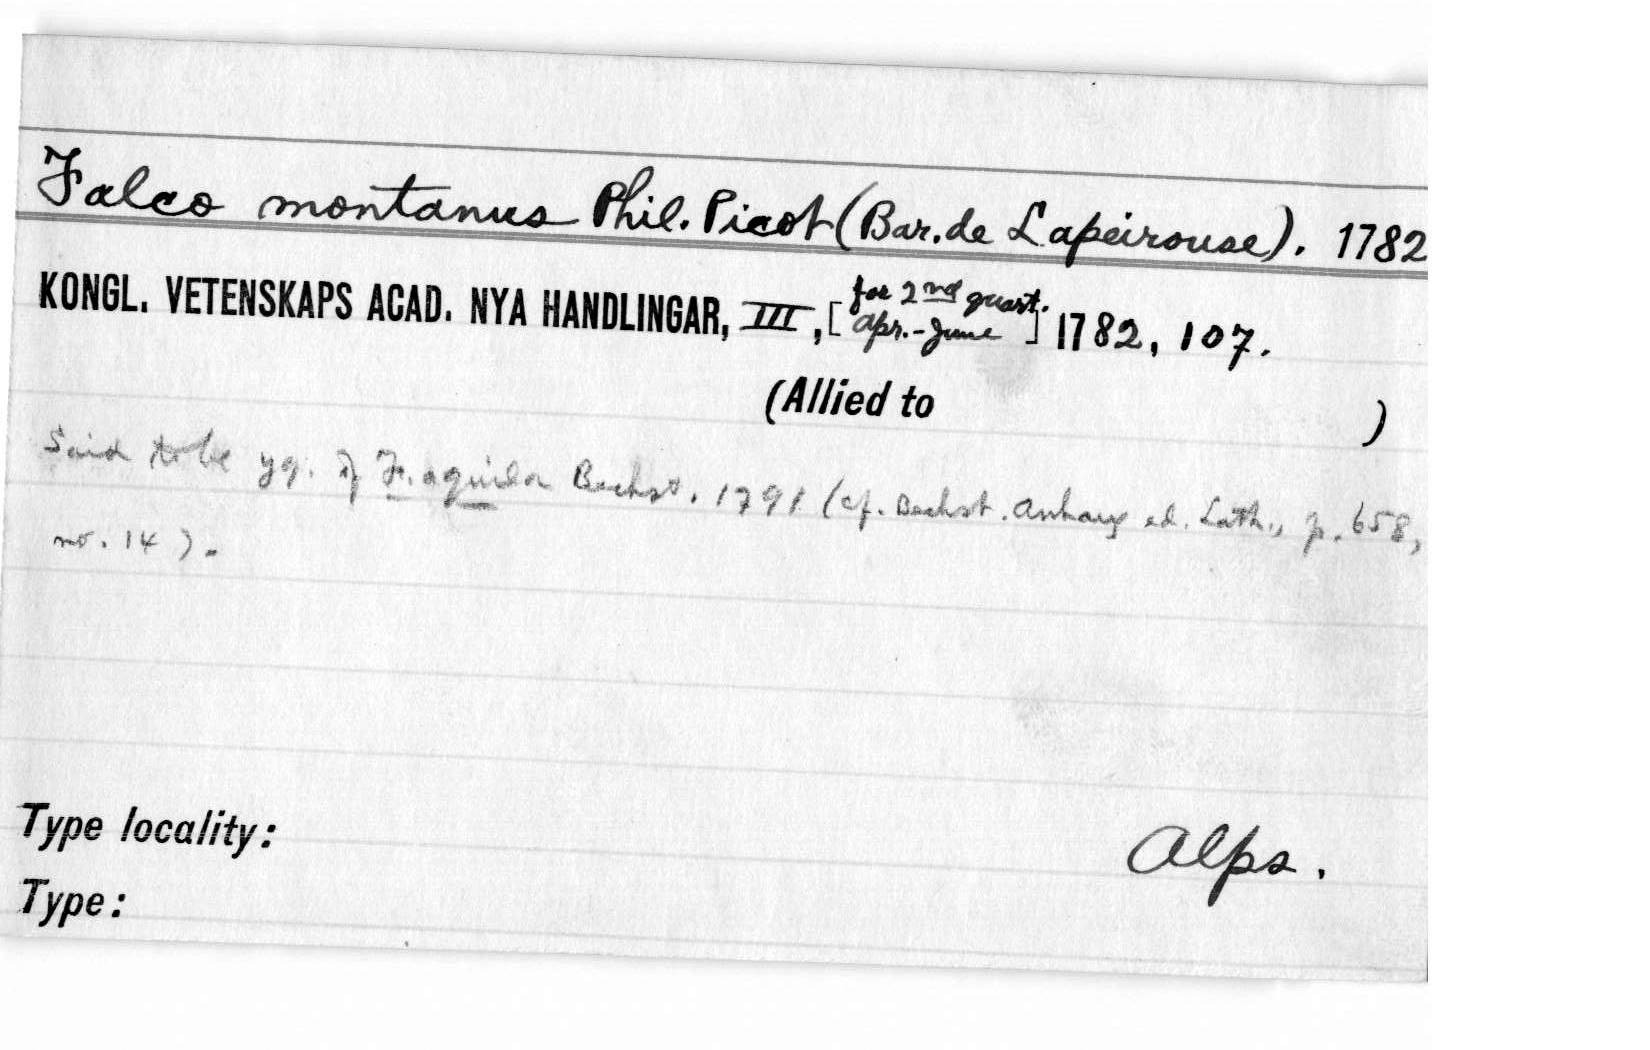 Falco montanus Phil. Picot (Bar. de Lapeirouse). 1782
KONGL. VETENSKAPS ACAD. NYA HANDLINGAR, III, [for 2nd quart. Apr.-June] 1782, 107.
(Allied to )
Said to be yg. of F. aquila Bechst. 1791 (cf. Bechst. Anhang ed. Lath., p. 658,
no. 14).
Type locality: Alps.
Type: